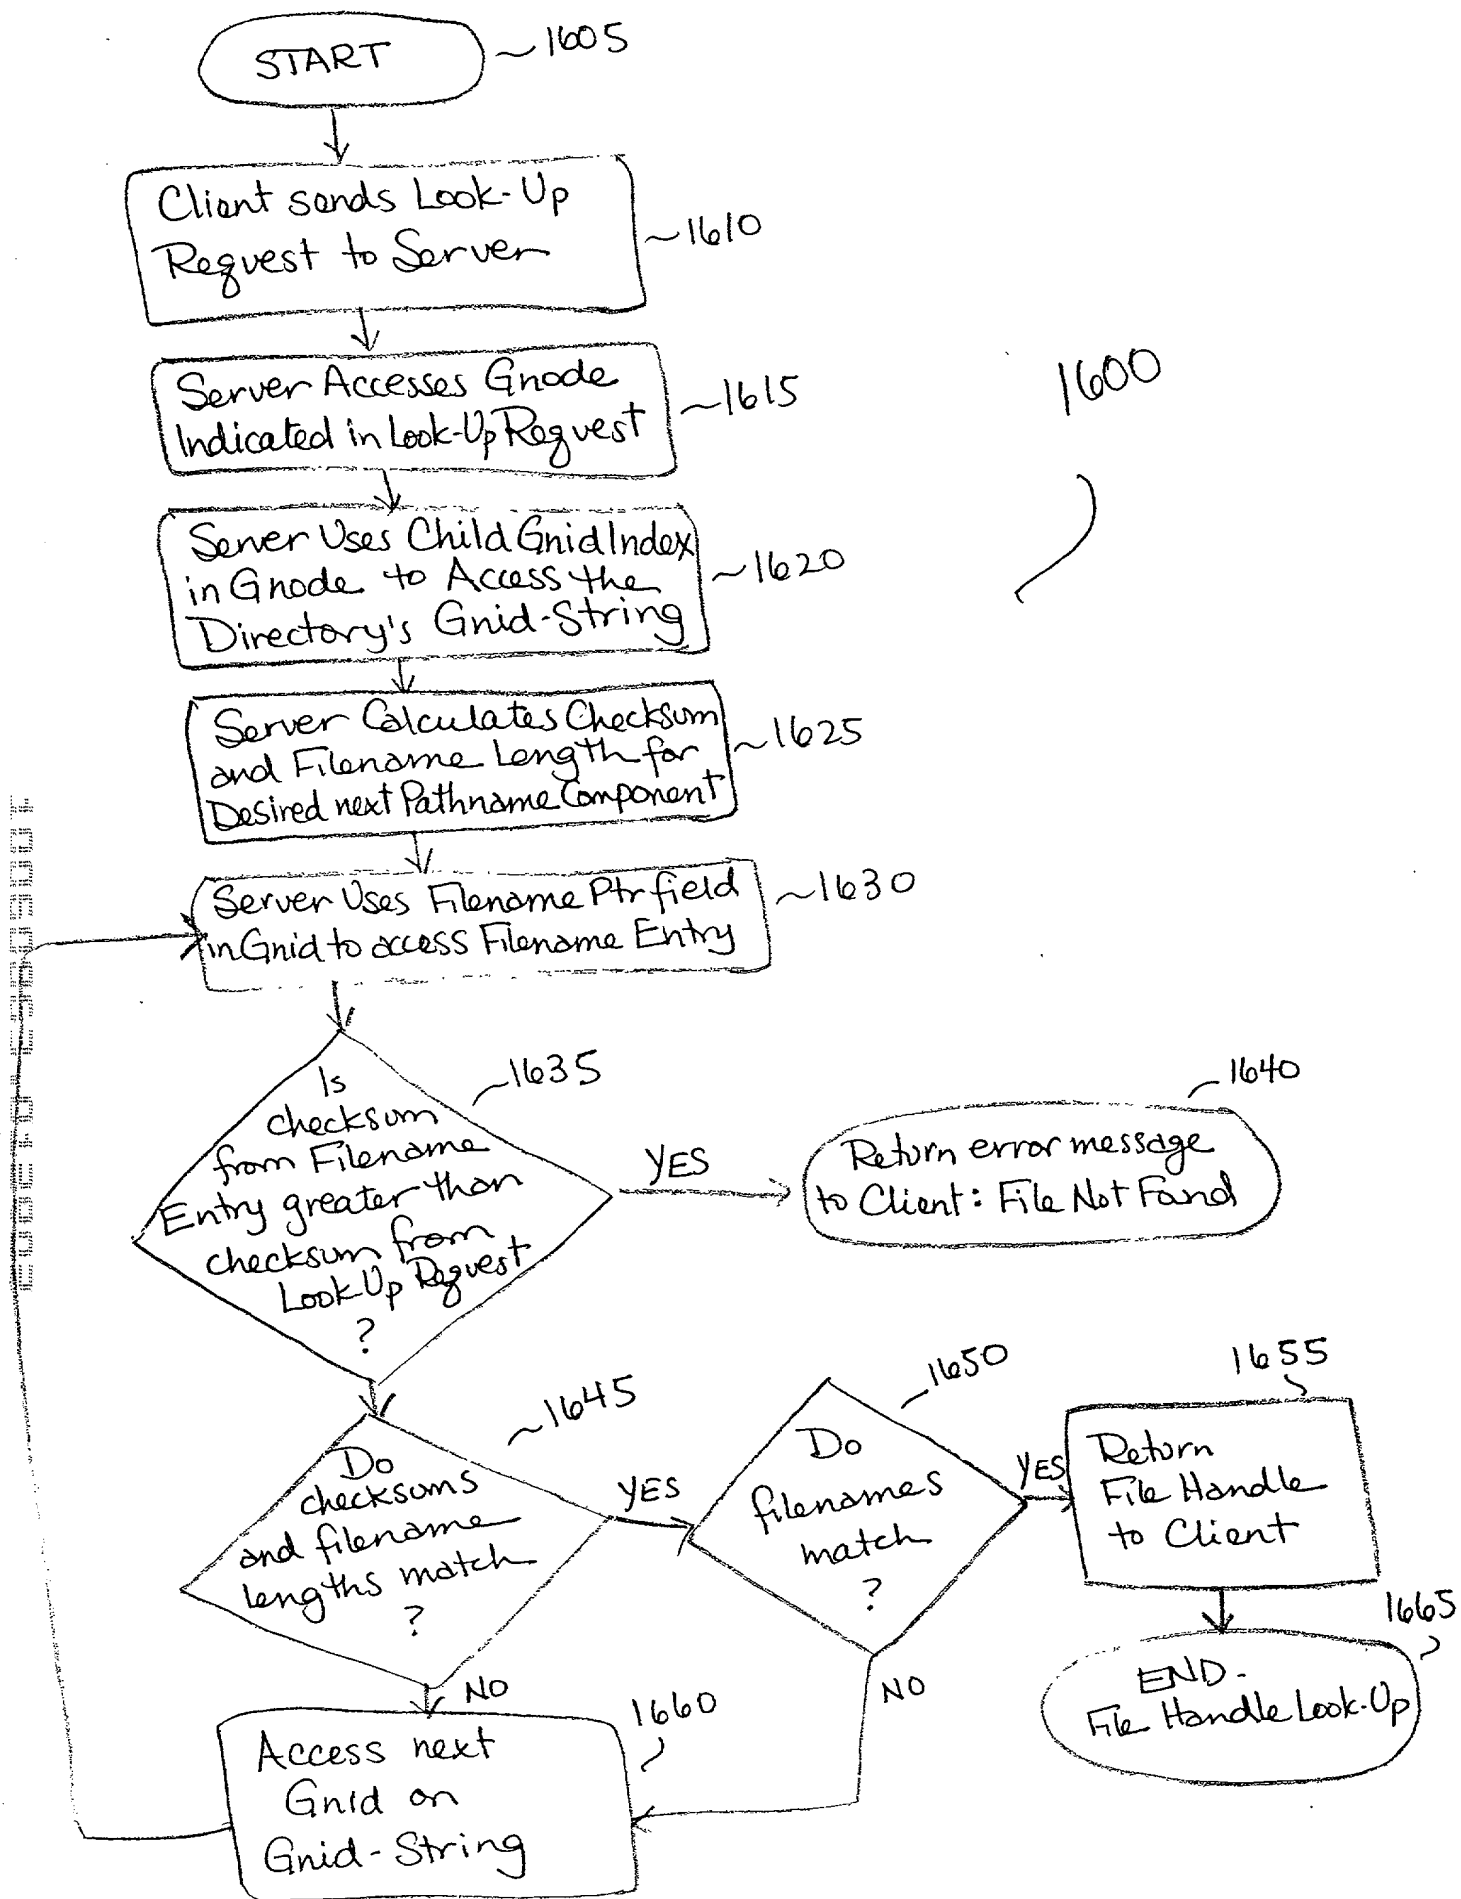 START
~1605
Client sends Look-Up
Request to Server
~1610
Server Accesses Gnode
Indicated in Look-Up Request
~1615
1600
Server Uses Child Gnid Index
in Gnode to Access the
Directory's Gnid-String
~1620
Server Calculates Checksum
and Filename Length for
Desired next Pathname Component
~1625
Server Uses Filename Ptr field
in Gnid to access Filename Entry
~1630
Is
checksum
from Filename
Entry greater than
checksum from
Look-Up Request
?
1635
YES
1640
Return error message
to Client: File Not Found
Do
checksums
and filename
lengths match
?
~1645
YES
NO
Do
filenames
match
?
1650
YES
NO
1655
Return
File Handle
to Client
1665
END-
File Handle Look-Up
1660
Access next
Gnid on
Gnid-String